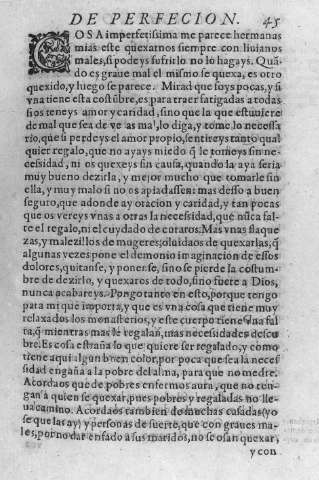 DE PERFECION. 45
COSA imperfetissima me parece hermanas
mias este quexarnos siempre con liuianos
males, si podeys sufrirlo no lo hagays. Quã
do es graue mal el mismo se quexa, es otro
quexido, y luego se parece. Mirad que soys pocas, y si
vna tiene esta costũbre, es para traer fatigadas a todas
si os teneys amor y caridad, sino que la que estuuiere
de mal que sea de veras mal, lo diga, y tome lo necessa
rio, que si perdeys el amor propio, sentireys tanto qual
quier regalo, que no ayays miedo q̃ le tomeys sin ne-
cessidad, ni os quexeys sin causa, quando la aya seria
muy bueno dezirla, y mejor mucho que tomarle sin
ella, y muy malo si no os apiadassen: mas desso a buen
seguro, que adonde ay oracion y caridad, y tan pocas
que os vereys vnas a otras la necessidad, que nũca fal-
te el regalo, ni el cuydado de curaros. Mas vnas flaque
zas, y malezillos de mugeres, oluidaos de quexarlas, q̃
algunas vezes pone el demonio imaginacion de essos
dolores, quitanse, y ponense, sino se pierde la costum-
bre de dezirlo, y quexaros de todo, sino fuere a Dios,
nunca acabareys. Pongo tanto en esto, porque tengo
para mi que importa, y que es vna cosa que tiene muy
relaxados los monasterios, y este cuerpo tiene vna fal
ta, q̃ mientras mas le regalan, mas necessidades descu
bre. Es cosa estraña lo que quiere ser regalado, y como
tiene aqui algun buen color, por poca que sea la necesi
sidad engaña a la pobre del alma, para que no medre.
Acordaos que de pobres enfermos aura, que no ten-
gan a quien se quexar, pues pobres y regaladas no lle-
ua camino. Acordaos tambien de muchas casadas (yo
se que las ay) y personas de suerte, que con graues ma-
les, por no dar enfado a sus maridos, no se osan quexar,
y con